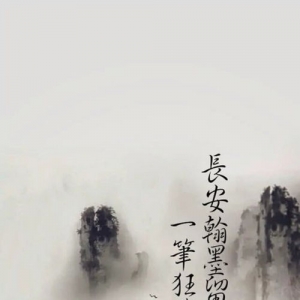 長安翰墨
一筆狂